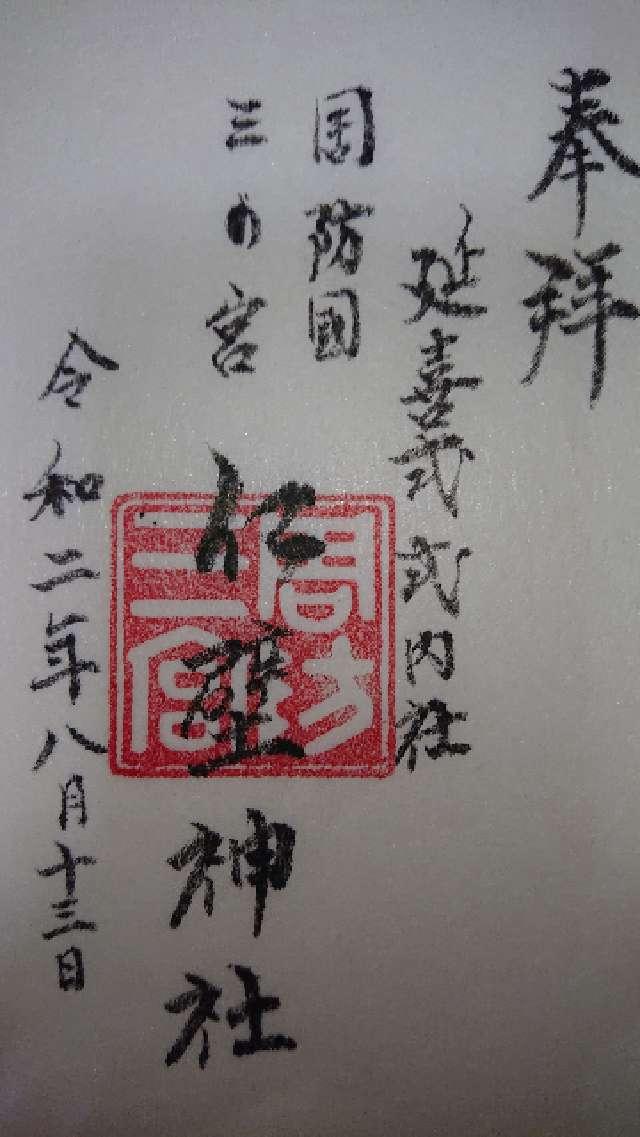 奉拜
延喜式式内社
周防國
三の宮
仁壁神社
周防三宮
令和二年八月十三日